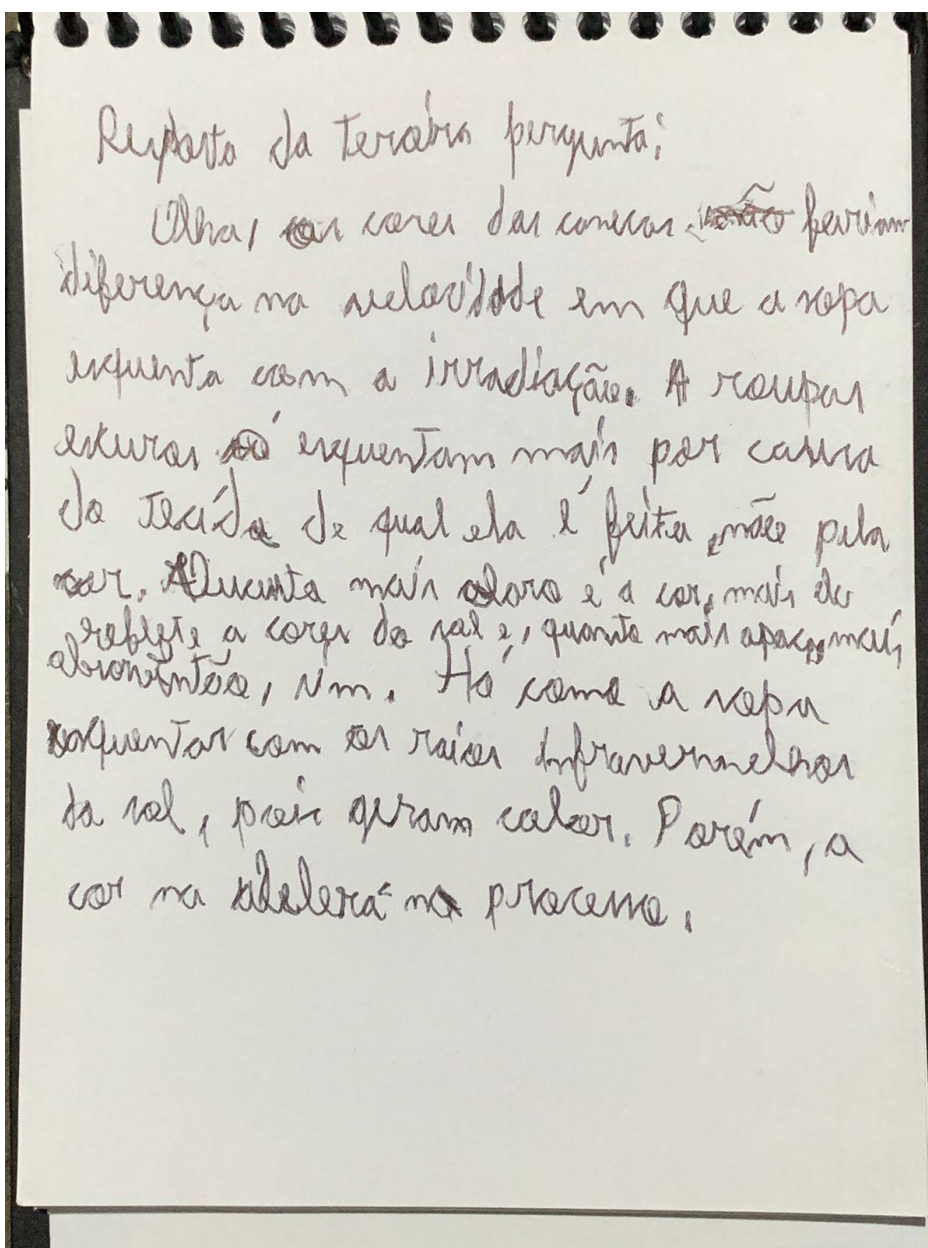 Resposta da terceira pergunta:
Olha, as cores das canecas não fariam
diferença na velocidade em que a sopa
esquenta com a irradiação. A roupas
escuras só esquentam mais por causa
do tecido de qual ela é feita, não pela
cor. Quanto mais claro é a cor, mais ele
reflete a cores do sol e, quanto mais opaco, mais
absorventão, sim. Há como a sopa
esquentar com os raios infravermelhos
do sol, pois geram calor. Porém, a
cor na no processo.